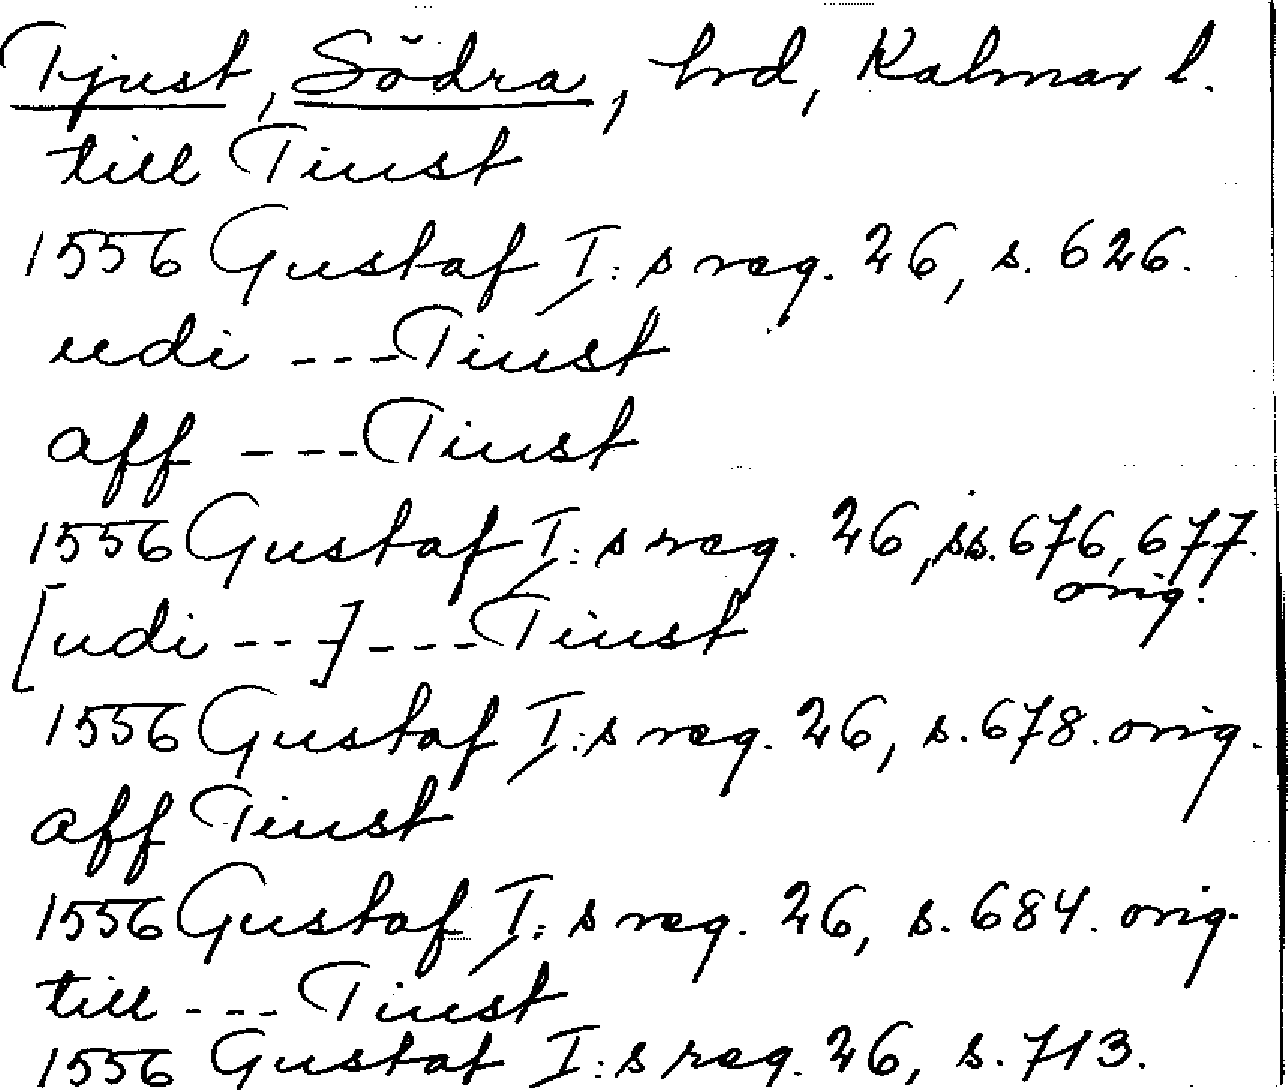 Tjust, Södra, hrd, Kalmar l.
till Tiust
1556 Gustaf I:s reg. 26, s. 626.
udi --- Tiust
aff --- Tiust
1556 Gustaf I:s reg. 26, ss. 676, 677.
orig.
[udi ---] --- Tiust
1556 Gustaf I:s reg. 26, s. 678. orig.
aff Tiust
1556 Gustaf I:s reg. 26, s. 684. orig.
till --- Tiust
1556 Gustaf I:s reg. 26, s. 713.